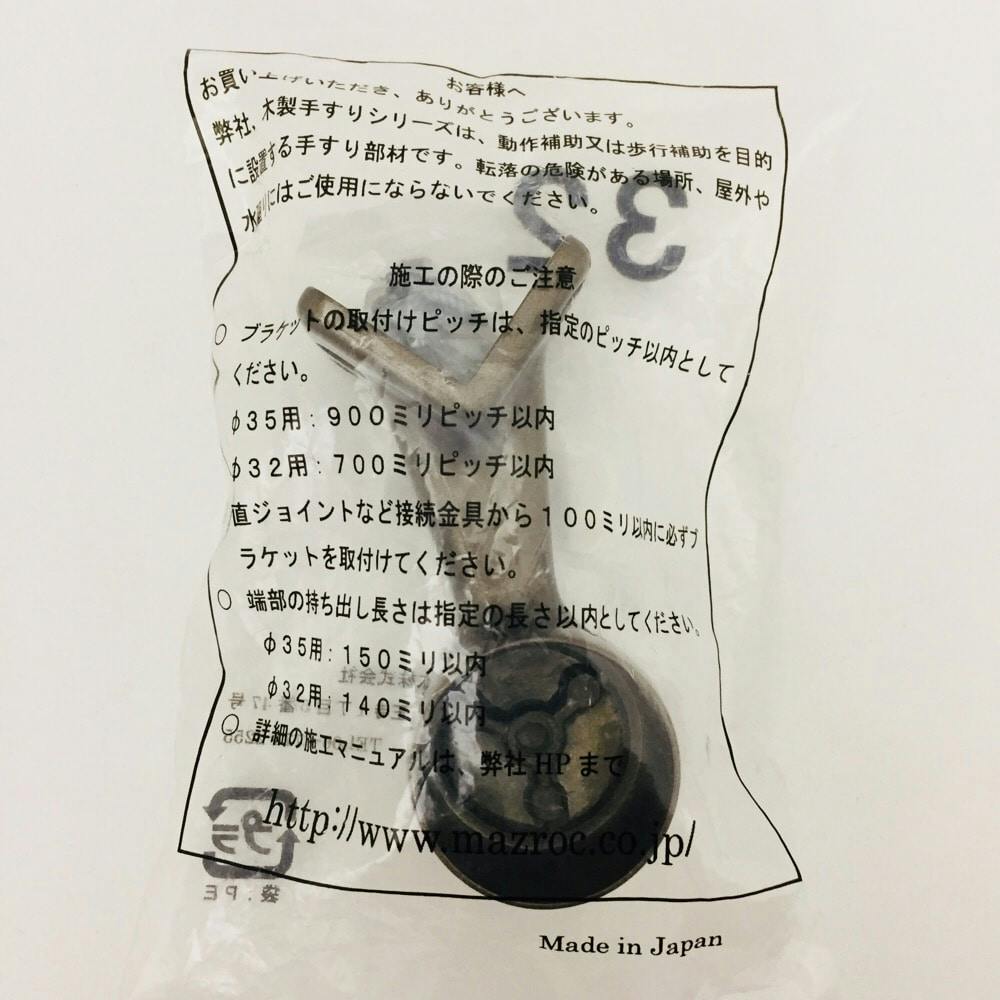 お客様へ
お買い上げいただき、ありがとうございます。
弊社、木製手すりシリーズは、動作補助又は歩行補助を目的
に設置する手すり部材です。転落の危険がある場所、屋外や
水廻りにはご使用にならないでください。
32
施工の際のご注意
○ ブラケットの取付けピッチは、指定のピッチ以内として
ください。
φ35用：900ミリピッチ以内
φ32用：700ミリピッチ以内
直ジョイントなど接続金具から100ミリ以内に必ずブ
ラケットを取付けてください。
○ 端部の持ち出し長さは指定の長さ以内としてください。
φ35用：150ミリ以内
φ32用：140ミリ以内
○ 詳細の施工マニュアルは、弊社HPまで
http://www.mazroc.co.jp/
プラ
袋：PE
Made in Japan